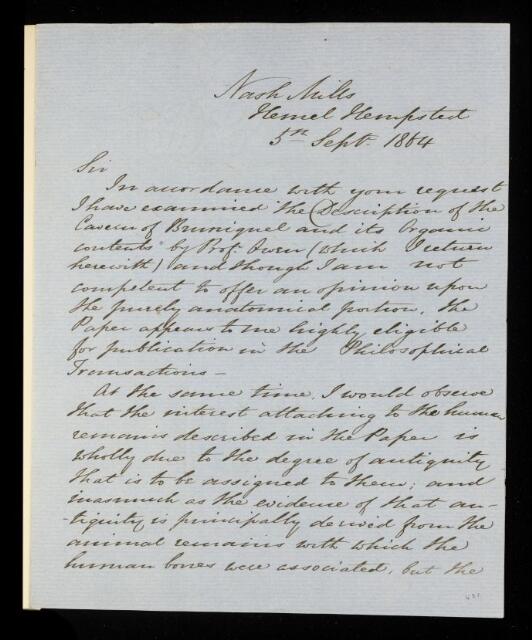 Nash Mills
Hemel Hempsted
5th Sept. 1864
Sir
In accordance with your request
I have examined the "Description of the
Cavern of Bruniquel and its Organic
contents" by Prof. Owen (which I return
herewith) and though I am not
competent to offer an opinion upon
the purely anatomical portion, the
Paper appears to me highly eligible
for publication in the Philosophical
Transactions –
At the same time, I would observe
that the interest attaching to the human
remains described in the Paper is
wholly due to the degree of antiquity
that is to be assigned to them; and
inasmuch as the evidence of that an-
-tiquity is principally derived from the
animal remains with which the
human bones were associated, but the